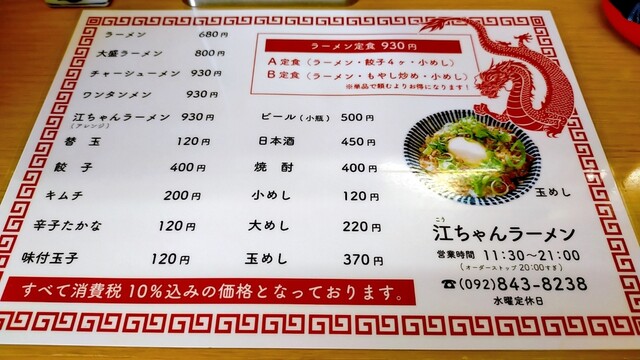 ラーメン 680円
大盛ラーメン 800円
チャーシューメン 930円
ワンタンメン 930円
江ちゃんラーメン 930円
(アレンジ)
替玉 120円
餃子 400円
キムチ 200円
辛子たかな 120円
味付玉子 120円
ラーメン定食 930円
A定食(ラーメン・餃子4ヶ・小めし)
B定食(ラーメン・もやし炒め・小めし)
※単品で頼むよりお得になります!
ビール(小瓶) 500円
日本酒 450円
焼酎 400円
小めし 120円
大めし 220円
玉めし 370円
すべて消費税10%込みの価格となっております。
玉めし
こう
江ちゃんラーメン
営業時間 11:30〜21:00
(オーダーストップ20:00すぎ)
☎(092)843-8238
水曜定休日